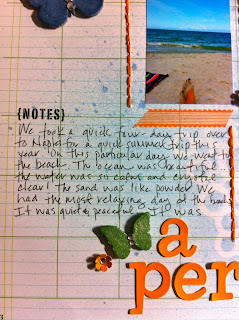 {NOTES}
We took a quick four-day trip over
to Naples for a quick summer trip this
year. On this particular day we went to
the beach. The ocean was beautiful...
the water was so calm and crystal
clear! The sand was like powder. We
had the most relaxing day at the beach.
It was quiet & peaceful. It was
a
per